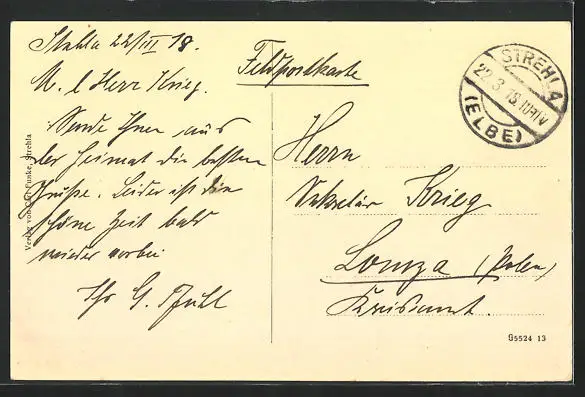 Strehla 22/III 18.
M. l. Herr Krieg.
Sende Ihnen aus
der Heimat die besten
Grüße. Leider ist die
schöne Zeit bald
wieder vorbei
Ihr G.
Feldpostkarte
STREHLA
22.3.18.
(ELBE)
Herrn
Sekretär Krieg
Lomza (Polen)
Kreisamt.
Verlag von Funke, Strehla
G5524 13